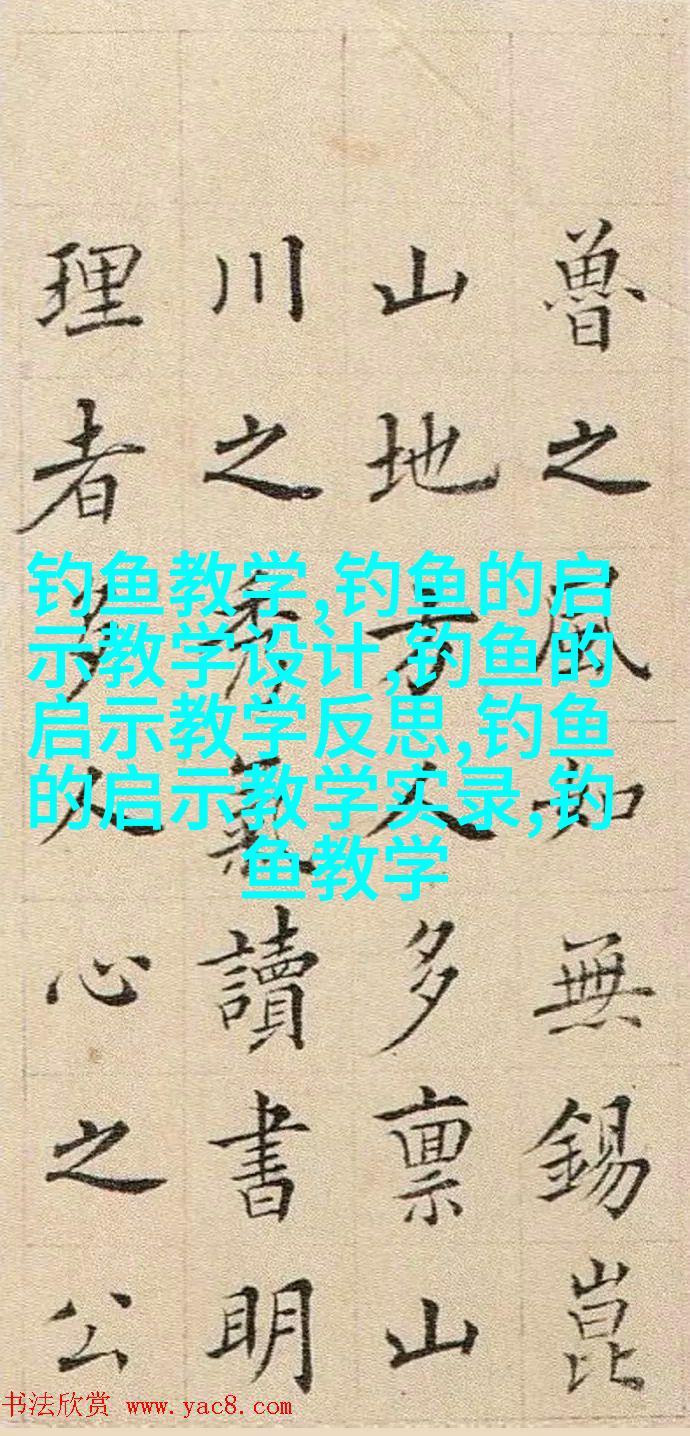 魯之風如無錫崑
山地方人多稟山
川之秀氣讀書明
理者多人心之公
钓鱼教学,钓鱼的启
示教学设计,钓鱼的
启示教学反思,钓鱼
的启示教学实录,钓
鱼教学
书法欣赏 www.yac8.com